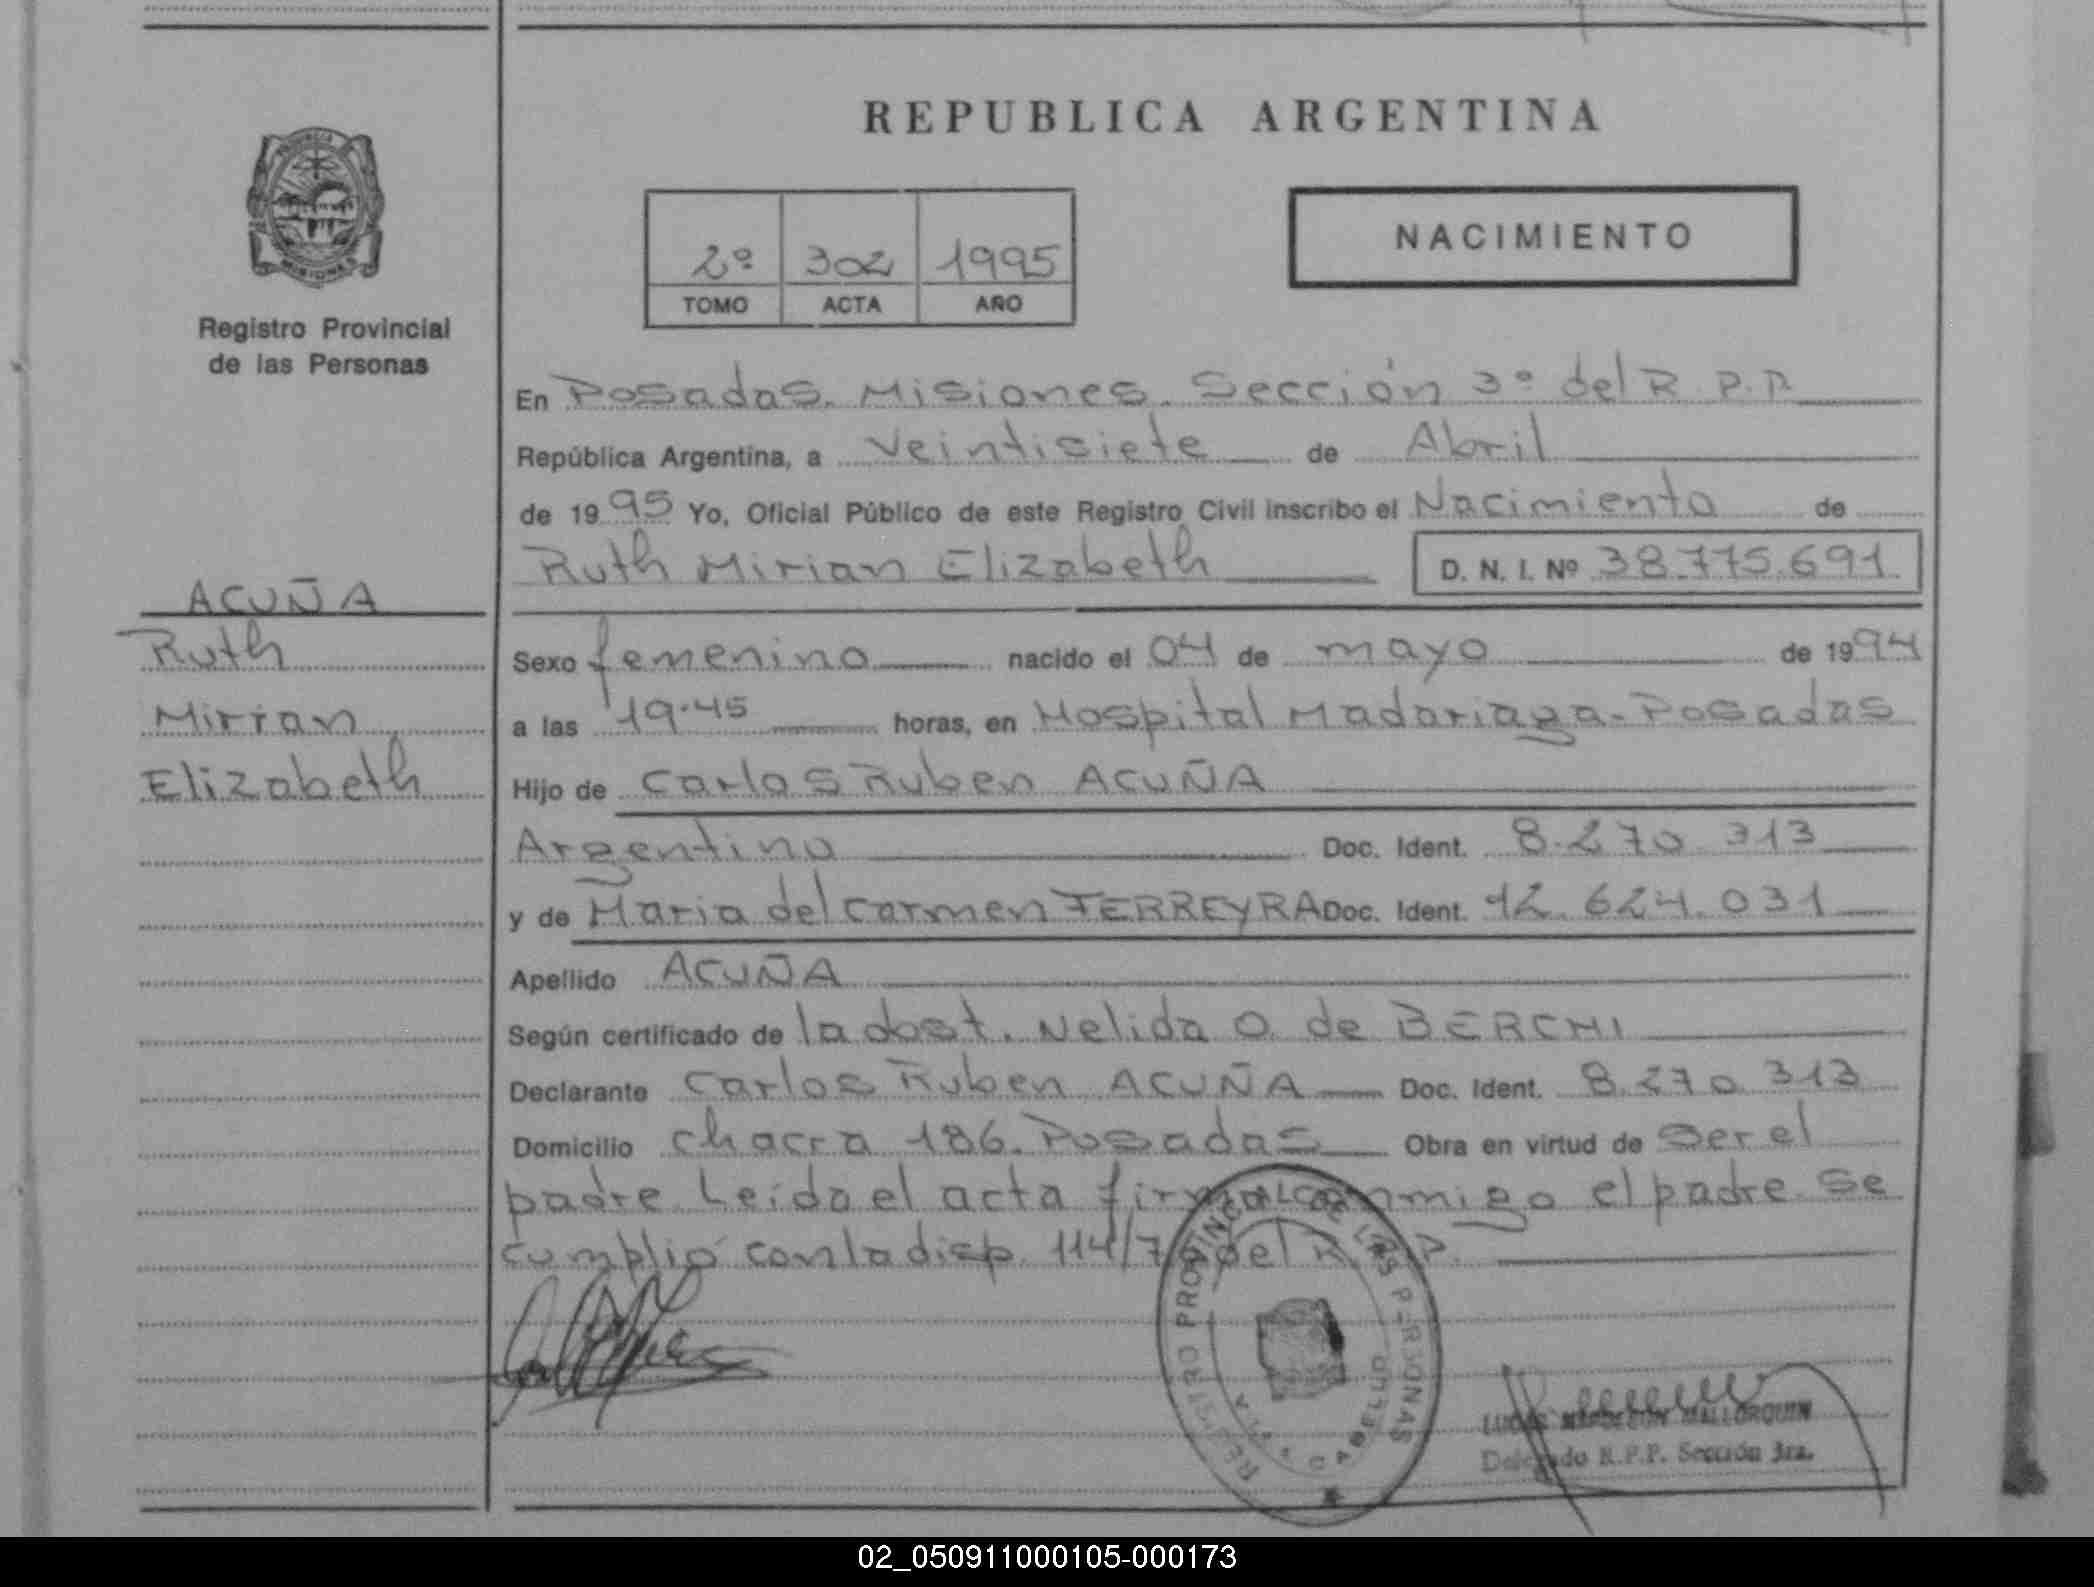 REPUBLICA ARGENTINA
PROVINCIA
MISIONES
Registro Provincial
de las Personas
2º 302 1995
TOMO ACTA AÑO
NACIMIENTO
En Posadas. Misiones. Sección 3º del R.P.P.
República Argentina, a veintisiete de Abril
de 1995 Yo, Oficial Público de este Registro Civil inscribo el Nacimiento de
Ruth Mirian Elizabeth D. N. I. Nº 38.775.691
ACUÑA
Ruth
Mirian
Elizabeth
Sexo femenino nacido el 04 de mayo de 1994
a las 19.45 horas, en Hospital Madariaga-Posadas
Hijo de Carlos Ruben ACUÑA
Argentino Doc. Ident. 8.270.313
y de Maria del Carmen FERREYRA Doc. Ident. 12.624.031
Apellido ACUÑA
Según certificado de la obst. Nelida O. de BERCHI
Declarante Carlos Ruben ACUÑA Doc. Ident. 8.270.313
Domicilio chacra 186. Posadas Obra en virtud de ser el
padre. Leida el acta firma conmigo el padre. Se
cumplió con la disp. 114/7 del R.P.P.
REGISTRO PROVINCIAL DE LAS PERSONAS
VILLA CABELLO
LUCAS NAPOLEON MALLORQUIN
Delegado R.P.P. Sección 3ra.
02_050911000105-000173